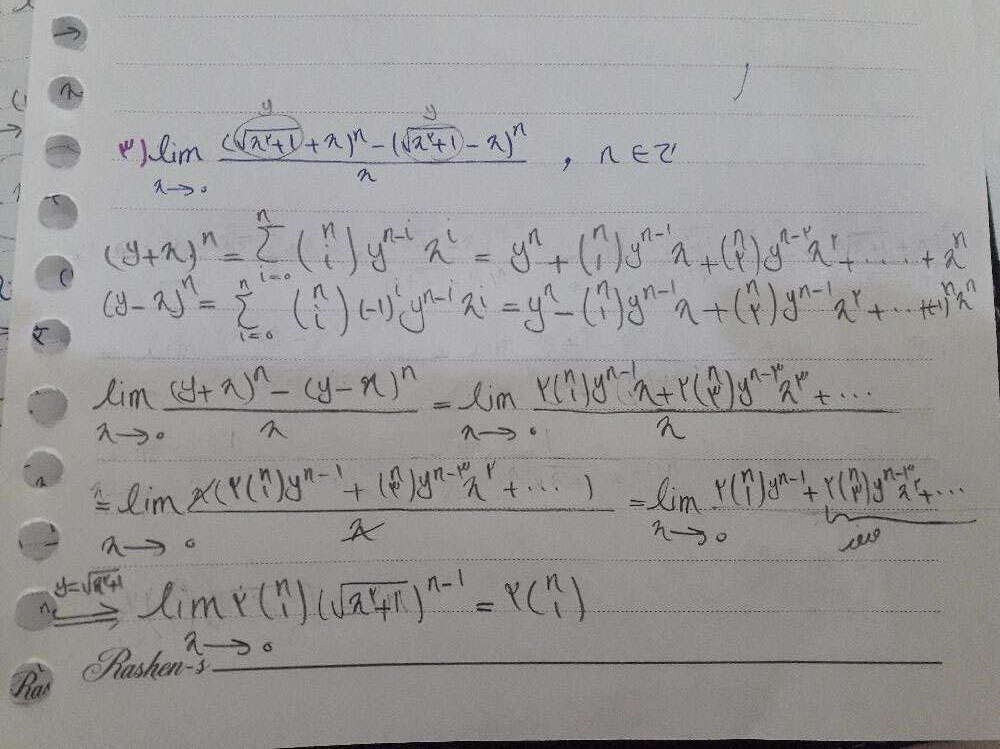 ۳) lim x→0 ((√(x²+1) + x)ⁿ − (√(x²+1) − x)ⁿ) / x , n ∈ ℤ
(y+x)ⁿ = Σ_{i=0}^{n} (n i) y^{n-i} x^i = yⁿ + (n 1) y^{n-1} x + (n ۲) y^{n-۲} x^۲ + .... + xⁿ
(y-x)ⁿ = Σ_{i=0}^{n} (n i) (-1)^i y^{n-i} x^i = yⁿ − (n 1) y^{n-1} x + (n ۲) y^{n-1} x^۲ + ...+(-1)ⁿ xⁿ
lim x→0 ((y+x)ⁿ − (y−x)ⁿ) / x = lim x→0 (۲(n 1) y^{n-1} x + ۲(n ۳) y^{n-۳} x^۳ + ...) / x
= lim x→0 x(۲(n 1) y^{n-1} + (n ۳) y^{n-۳} x^۲ + ...) / x = lim x→0 ۲(n 1) y^{n-1} + ۲(n ۳) y^{n-۳} x^۲ + ...
y=√(x²+1) ⟹ lim x→0 ۲(n 1) (√(x^۲+1))^{n-1} = ۲(n 1)
Rashen-s
Ras